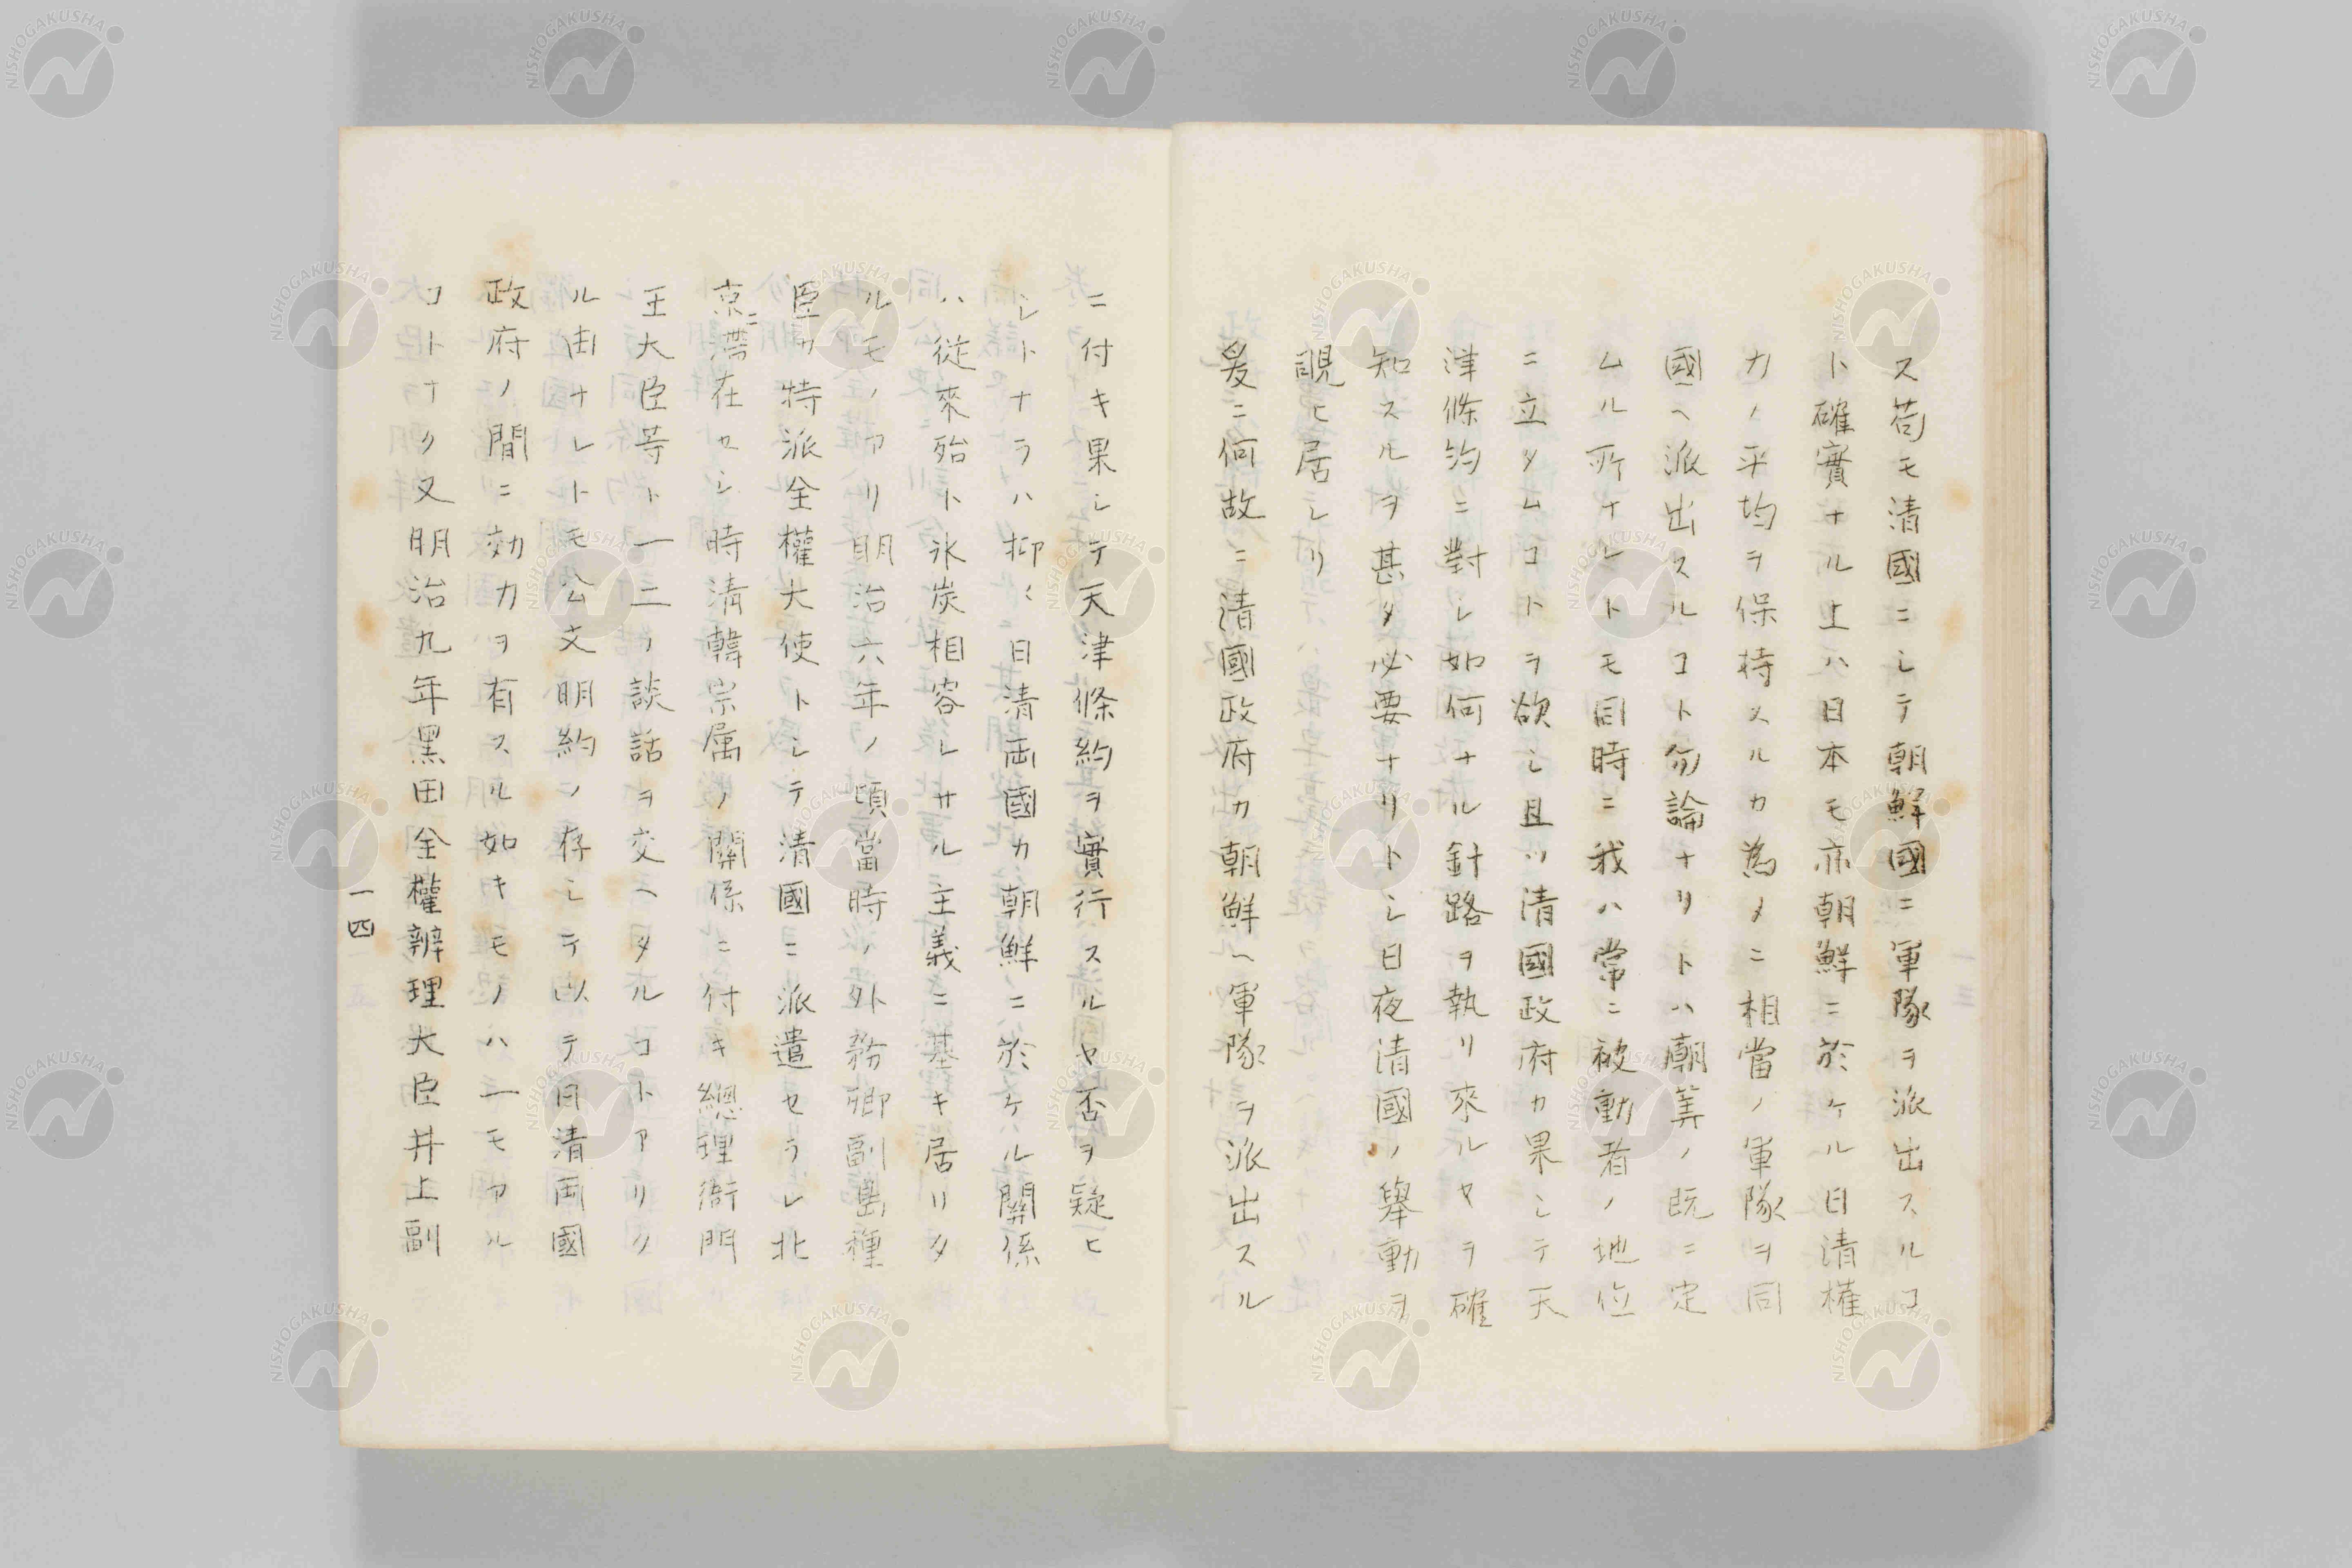 ス苟モ清國ニシテ朝鮮國ニ軍隊ヲ派出スルコ
ト確實ナル上ハ日本モ亦朝鮮ニ於ケル日清權
力ノ平均ヲ保持スルカ為メニ相當ノ軍隊ヲ同
國ヘ派出スルコト勿論ナリトハ廟筭ノ既ニ定
ムル所ナレトモ同時ニ我ハ常ニ被動者ノ地位
ニ立タムコトヲ欲シ且ツ清國政府カ果シテ天
津條約ニ對シ如何ナル針路ヲ執リ來ルヤヲ確
知スルヲ甚タ必要ナリトシ日夜清國ノ擧動ヲ
覘ヒ居シリ
爰ニ何故ニ清國政府カ朝鮮ヘ軍隊ヲ派出スル
ニ付キ果シテ天津條約ヲ實行スルヤ否ヲ疑ヒ
シトナラハ抑〻日清両國カ朝鮮ニ於ケル關係
ハ從來殆ト氷炭相容レサル主義ニ基キ居リタ
ルモノアリ明治六年ノ頃當時ノ外務卿副島種
臣カ特派全權大使トシテ清國ニ派遣セラレ北
京ニ滯在セシ時清韓宗属ノ關係ニ付キ總理衙門
王大臣等ト一二ノ談話ヲ交ヘタルコトアリタ
ル由ナレトモ公文明約ノ存シテ以テ日清両國
政府ノ間ニ効力ヲ有スル如キモノハ一モアル
コトナク又明治九年黒田全權辨理大臣井上副
一四
NISHOGAKUSHA